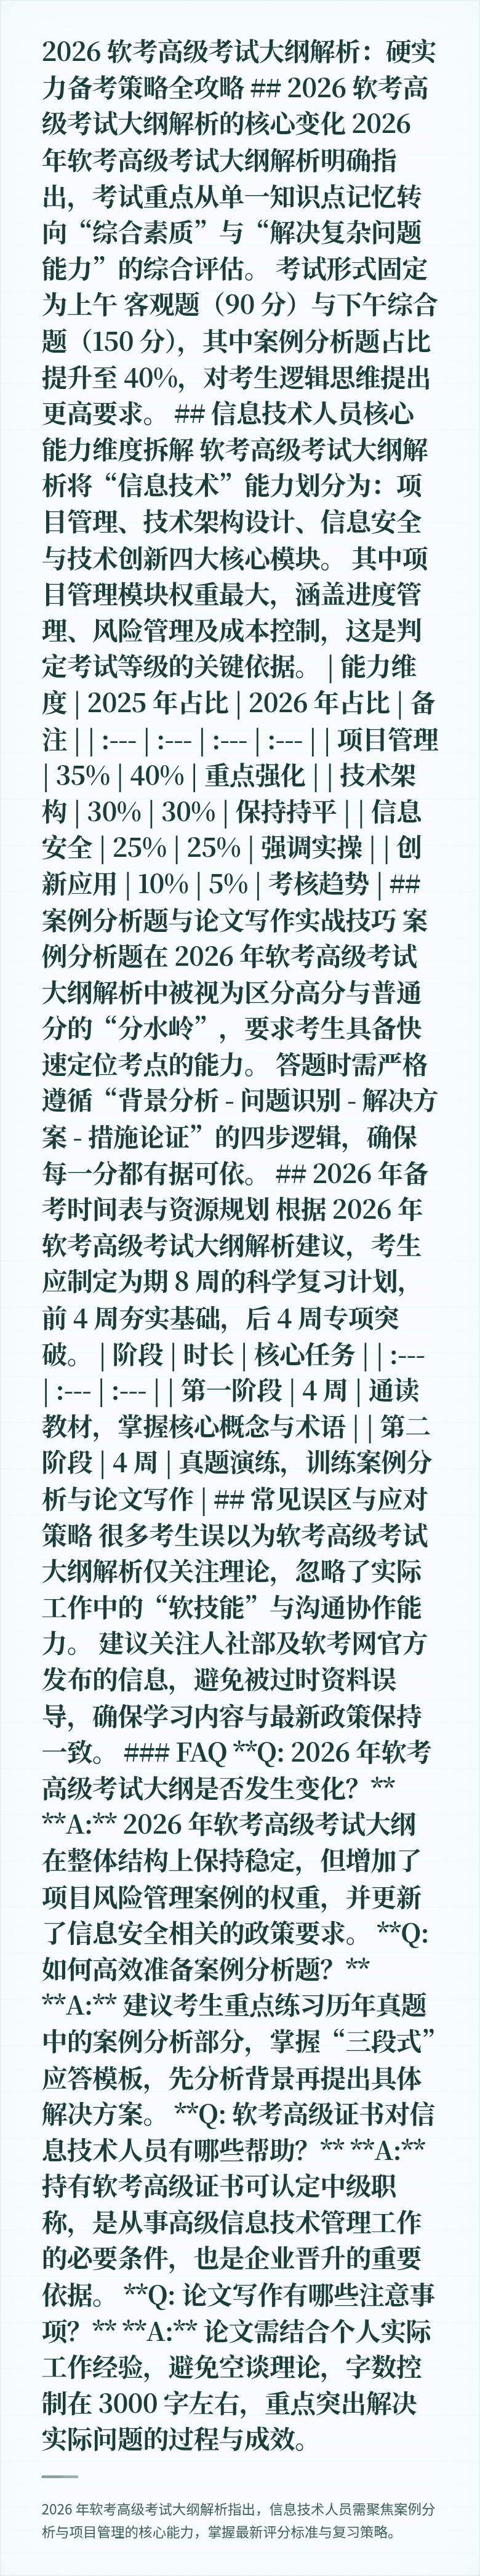 2026 软考高级考试大纲解析：硬实
力备考策略全攻略 ## 2026 软考高
级考试大纲解析的核心变化 2026
年软考高级考试大纲解析明确指
出，考试重点从单一知识点记忆转
向“综合素质”与“解决复杂问题
能力”的综合评估。 考试形式固定
为上午 客观题（90 分）与下午综合
题（150 分），其中案例分析题占比
提升至 40%，对考生逻辑思维提出
更高要求。 ## 信息技术人员核心
能力维度拆解 软考高级考试大纲解
析将“信息技术”能力划分为：项
目管理、技术架构设计、信息安全
与技术创新四大核心模块。 其中项
目管理模块权重最大，涵盖进度管
理、风险管理及成本控制，这是判
定考试等级的关键依据。 | 能力维
度 | 2025 年占比 | 2026 年占比 | 备
注 | | :--- | :--- | :--- | :--- | | 项目管理
| 35% | 40% | 重点强化 | | 技术架
构 | 30% | 30% | 保持持平 | | 信息
安全 | 25% | 25% | 强调实操 | | 创
新应用 | 10% | 5% | 考核趋势 | ##
案例分析题与论文写作实战技巧 案
例分析题在 2026 年软考高级考试
大纲解析中被视为区分高分与普通
分的“分水岭”，要求考生具备快
速定位考点的能力。 答题时需严格
遵循“背景分析 - 问题识别 - 解决方
案 - 措施论证”的四步逻辑，确保
每一分都有据可依。 ## 2026 年备
考时间表与资源规划 根据 2026 年
软考高级考试大纲解析建议，考生
应制定为期 8 周的科学复习计划，
前 4 周夯实基础，后 4 周专项突
破。 | 阶段 | 时长 | 核心任务 | | :---
| :--- | :--- | | 第一阶段 | 4 周 | 通读
教材，掌握核心概念与术语 | | 第二
阶段 | 4 周 | 真题演练，训练案例分
析与论文写作 | ## 常见误区与应对
策略 很多考生误以为软考高级考试
大纲解析仅关注理论，忽略了实际
工作中的“软技能”与沟通协作能
力。 建议关注人社部及软考网官方
发布的信息，避免被过时资料误
导，确保学习内容与最新政策保持
一致。 ### FAQ **Q: 2026 年软考
高级考试大纲是否发生变化？**
**A:** 2026 年软考高级考试大纲
在整体结构上保持稳定，但增加了
项目风险管理案例的权重，并更新
了信息安全相关的政策要求。 **Q:
如何高效准备案例分析题？**
**A:** 建议考生重点练习历年真题
中的案例分析部分，掌握“三段式”
应答模板，先分析背景再提出具体
解决方案。 **Q: 软考高级证书对信
息技术人员有哪些帮助？** **A:**
持有软考高级证书可认定中级职
称，是从事高级信息技术管理工作
的必要条件，也是企业晋升的重要
依据。 **Q: 论文写作有哪些注意事
项？** **A:** 论文需结合个人实际
工作经验，避免空谈理论，字数控
制在 3000 字左右，重点突出解决
实际问题的过程与成效。
2026 年软考高级考试大纲解析指出，信息技术人员需聚焦案例分
析与项目管理的核心能力，掌握最新评分标准与复习策略。